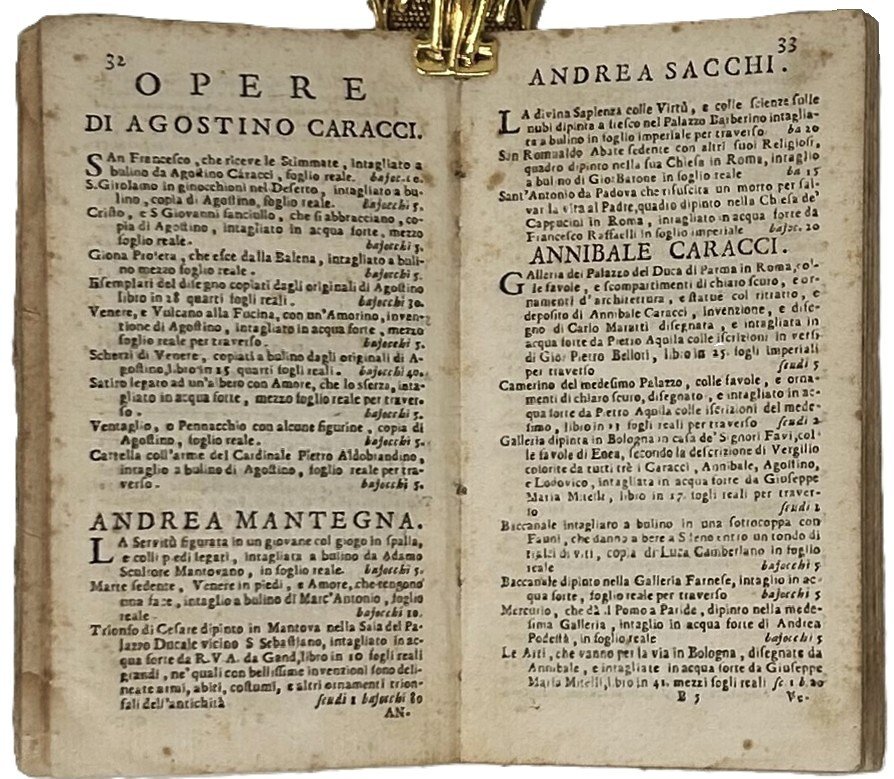 32
OPERE
DI AGOSTINO CARACCI.
SAn Francesco, che riceve le Stimmate, intagliato a
bulino da Agostino Caracci, foglio reale. bajoc. 10.
S. Girolamo in ginocchioni nel Deserto, intagliato a bu-
lino, copia di Agostino, foglio reale. bajocchi 5.
Cristo, e S Giovanni fanciullo, che si abbracciano, co-
pia di Agostino, intagliato in acqua forte, mezzo
foglio reale. bajocchi 5.
Giona Profeta, che esce dalla Balena, intagliato a buli-
no mezzo foglio reale. bajocchi 5.
Esemplari del disegno copiati dagli originali di Agostino
libro in 28 quarti fogli reali. bajocchi 30.
Venere, e Vulcano alla Fucina, con un'Amorino, inven-
zione di Agostino, intagliato in acqua forte, mezzo
foglio reale per traverso. bajocchi 5.
Scherzi di Venere, copiati a bulino dagli originali di A-
gostino, libro in 15 quarti fogli reali. bajocchi 40.
Satiro legato ad un'albero con Amore, che lo sferza, inta-
gliato in acqua forte, mezzo foglio reale per traver-
so. bajocchi 5.
Ventaglio, o Pennacchio con alcune figurine, copia di
Agostino, foglio reale. bajocchi 5.
Cartella coll'arme del Cardinale Pietro Aldobrandino,
intaglio a bulino di Agostino, foglio reale per tra-
verso. bajocchi 5.
ANDREA MANTEGNA.
LA Servitù figurata in un giovane col giogo in spalla,
e colli piedi legati, intagliata a bulino da Adamo
Scultore Mantovano, in foglio reale. bajocchi 5.
Marte sedente, Venere in piedi, e Amore, che tengono
una face, intaglio a bulino di Marc'Antonio, foglio
reale. bajocchi 10.
Trionfo di Cesare dipinto in Mantova nella Sala del Pa-
lazzo Ducale vicino S Sebastiano, intagliato in ac-
qua forte da R. V. A. da Gand, libro in 10 fogli reali
grandi, ne' quali con bellissime invenzioni sono deli-
neate armi, abiti, costumi, e altri ornamenti trion-
fali dell'antichità scudi 1 bajocchi 80
AN-
33
ANDREA SACCHI.
LA divina Sapienza colle Virtù, e colle scienze sulle
nubi dipinta a fresco nel Palazzo Barberino intaglia-
ta a bulino in foglio imperiale per traverso ba 20
San Romualdo Abate sedente con altri suoi Religiosi,
quadro dipinto nella sua Chiesa in Roma, intaglio
a bulino di Gio: Barone in foglio reale ba 15
Sant'Antonio da Padova che risuscita un morto per sal-
var la vita al Padre, quadro dipinto nella Chiesa de'
Cappucini in Roma, intagliato in acqua forte da
Francesco Raffaelli in foglio imperiale bajoc. 20
ANNIBALE CARACCI.
GAlleria dei Palazzo del Duca di Parma in Roma, col-
le favole, e scompartimenti di chiaro scuro, e or-
namenti d'architettura, e statue col ritratto, e
deposito di Annibale Caracci, invenzione, e dise-
gno di Carlo Maratti disegnata, e intagliata in
acqua forte da Pietro Aquila colle iscrizioni in versi
di Gio: Pietro Bellori, libro in 25. fogli imperiali
per traverso scudi 5
Camerino del medesimo Palazzo, colle favole, e orna-
menti di chiaro scuro, disegnato, e intagliato in ac-
qua forte da Pietro Aquila colle iscrizioni del mede-
simo, libro in 13 fogli reali per traverso scudi 2
Galleria dipinta in Bologna in casa de' Signori Favi, col-
le favole di Enea, secondo la descrizione di Vergilio
colorite da tutti trè i Caracci, Annibale, Agostino,
e Lodovico, intagliata in acqua forte da Giuseppe
Maria Mitelli, libro in 17. fogli reali per traver-
so scudi 2
Baccanale intagliato a bulino in una sottocoppa con
Fauni, che danno a bere a Sileno entro un tondo di
tralci di viti, copia di Luca Camberlano in foglio
reale bajocchi 5
Baccanale dipinto nella Galleria Farnese, intaglio in ac-
qua forte, foglio reale per traverso bajocchi 5
Mercurio, che dà il Pomo a Paride, dipinto nella mede-
sima Galleria, intaglio in acqua forte di Andrea
Podestà, in foglio reale bajocchi 5
Le Arti, che vanno per la via in Bologna, disegnate da
Annibale, e intagliate in acqua forte da Giuseppe
Maria Mitelli, libro in 41. mezzi fogli reali sc. 1 b. 20
B 5 Ve-